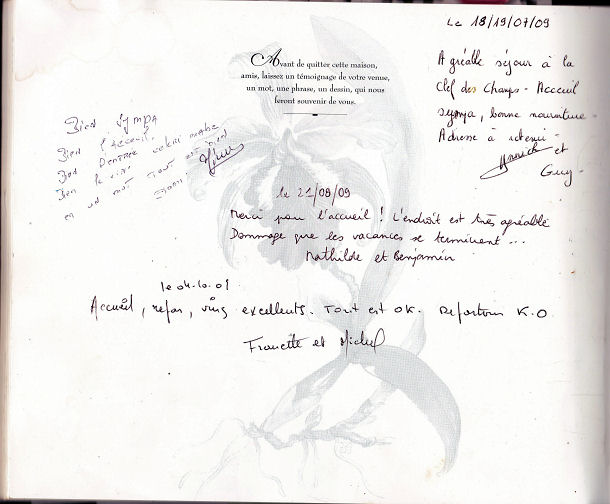 Le 18/19/07/09
Avant de quitter cette maison,
amis, laissez un témoignage de votre venue,
un mot, une phrase, un dessin, qui nous
feront souvenir de vous.
Agréable séjour à la
Clef des Champs - Acceuil
sympa, bonne nourriture -
Adresse à retenir -
Annick et
Guy -
Bien sympa
Bien l'acceuil.
Bon
Bien le vin
en un mot tout est bien
le 21/09/09
Merci pour l'accueil ! L'endroit est très agréable
Dommage que les vacances se terminent ...
Mathilde et Benjamin
le 04.10.09
Accueil, repas, vins excellents. Tout est OK. Repartons K.O
Francette et Michel